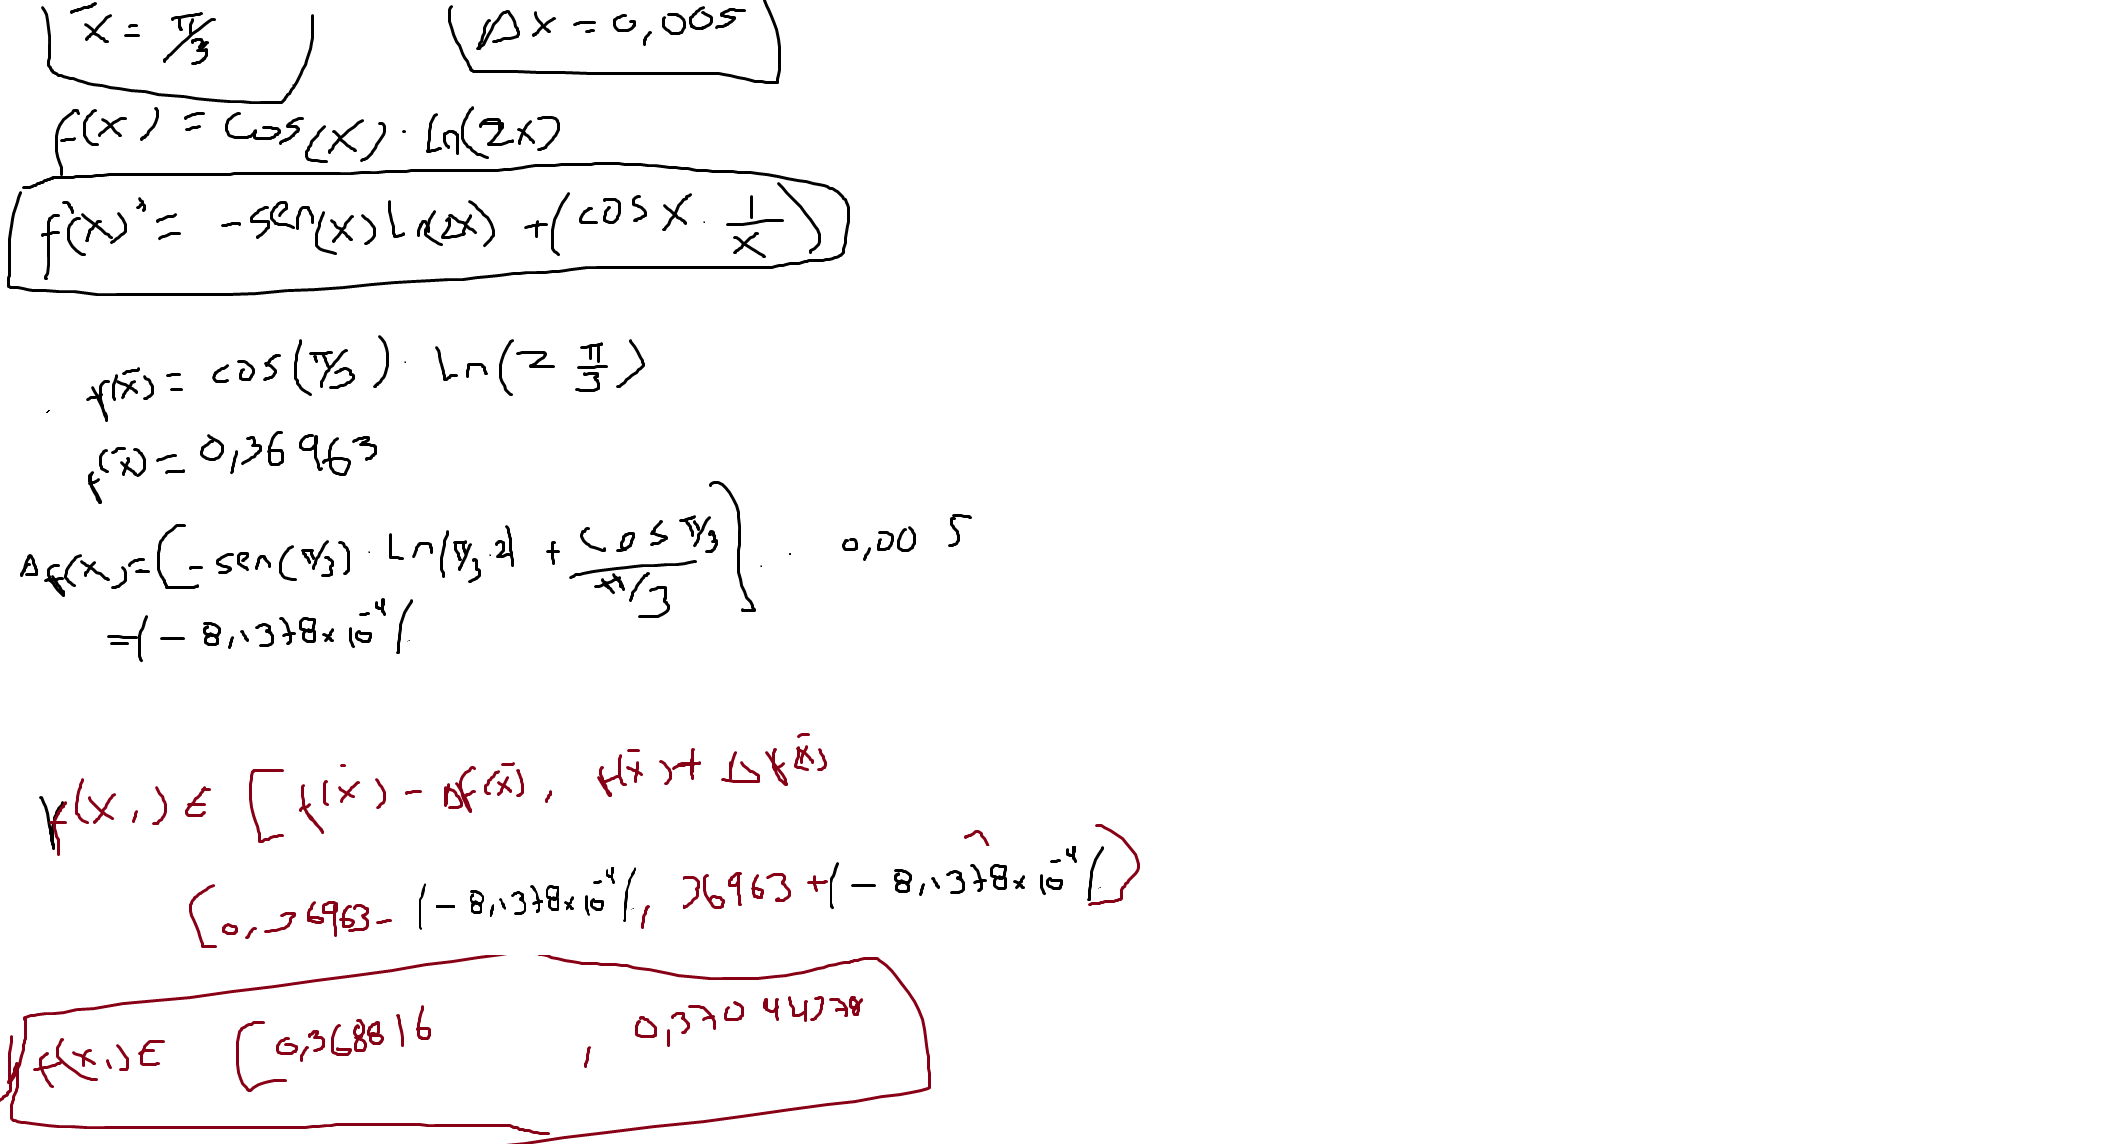 x̄ = π/3    Δx = 0,005
f(x) = cos(x) · Ln(2x)
f'(x)' = -sen(x) Ln(2x) + (cos x · 1/x)
f(x̄) = cos(π/3) · Ln(2 π/3)
f(x̄) = 0,36963
Δf(x) = [-sen(π/3) · Ln(π/3 · 2) + cos π/3 / π/3] · 0,005
= |-8,1378×10⁻⁴|
f(x,) ∈ [f(x̄) - Δf(x̄), f(x̄) + Δf(x̄)
[0,36963 - |-8,1378×10⁻⁴|, 36963 + |-8,1378×10⁻⁴|]
f(x,) ∈ [0,368816 , 0,37044378